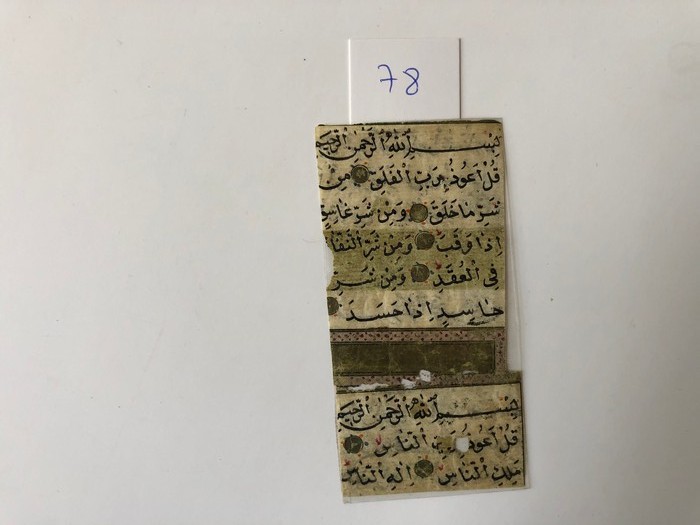 78
بِسْمِ اللهِ الرَّحْمٰنِ الرَّحِيمِ
قُلْ اَعُوذُ بِرَبِّ الْفَلَقِ مِنْ
شَرِّ مَا خَلَقَ وَمِنْ شَرِّ غَاسِقٍ
اِذَا وَقَبَ وَمِنْ شَرِّ النَّفَّا
فِي الْعُقَدِ وَمِنْ شَرِّ
حَاسِدٍ اِذَا حَسَدَ
بِسْمِ اللهِ الرَّحْمٰنِ الرَّحِيمِ
قُلْ اَعُوذُ بِرَبِّ النَّاسِ
مَلِكِ النَّاسِ اِلٰهِ النَّاسِ